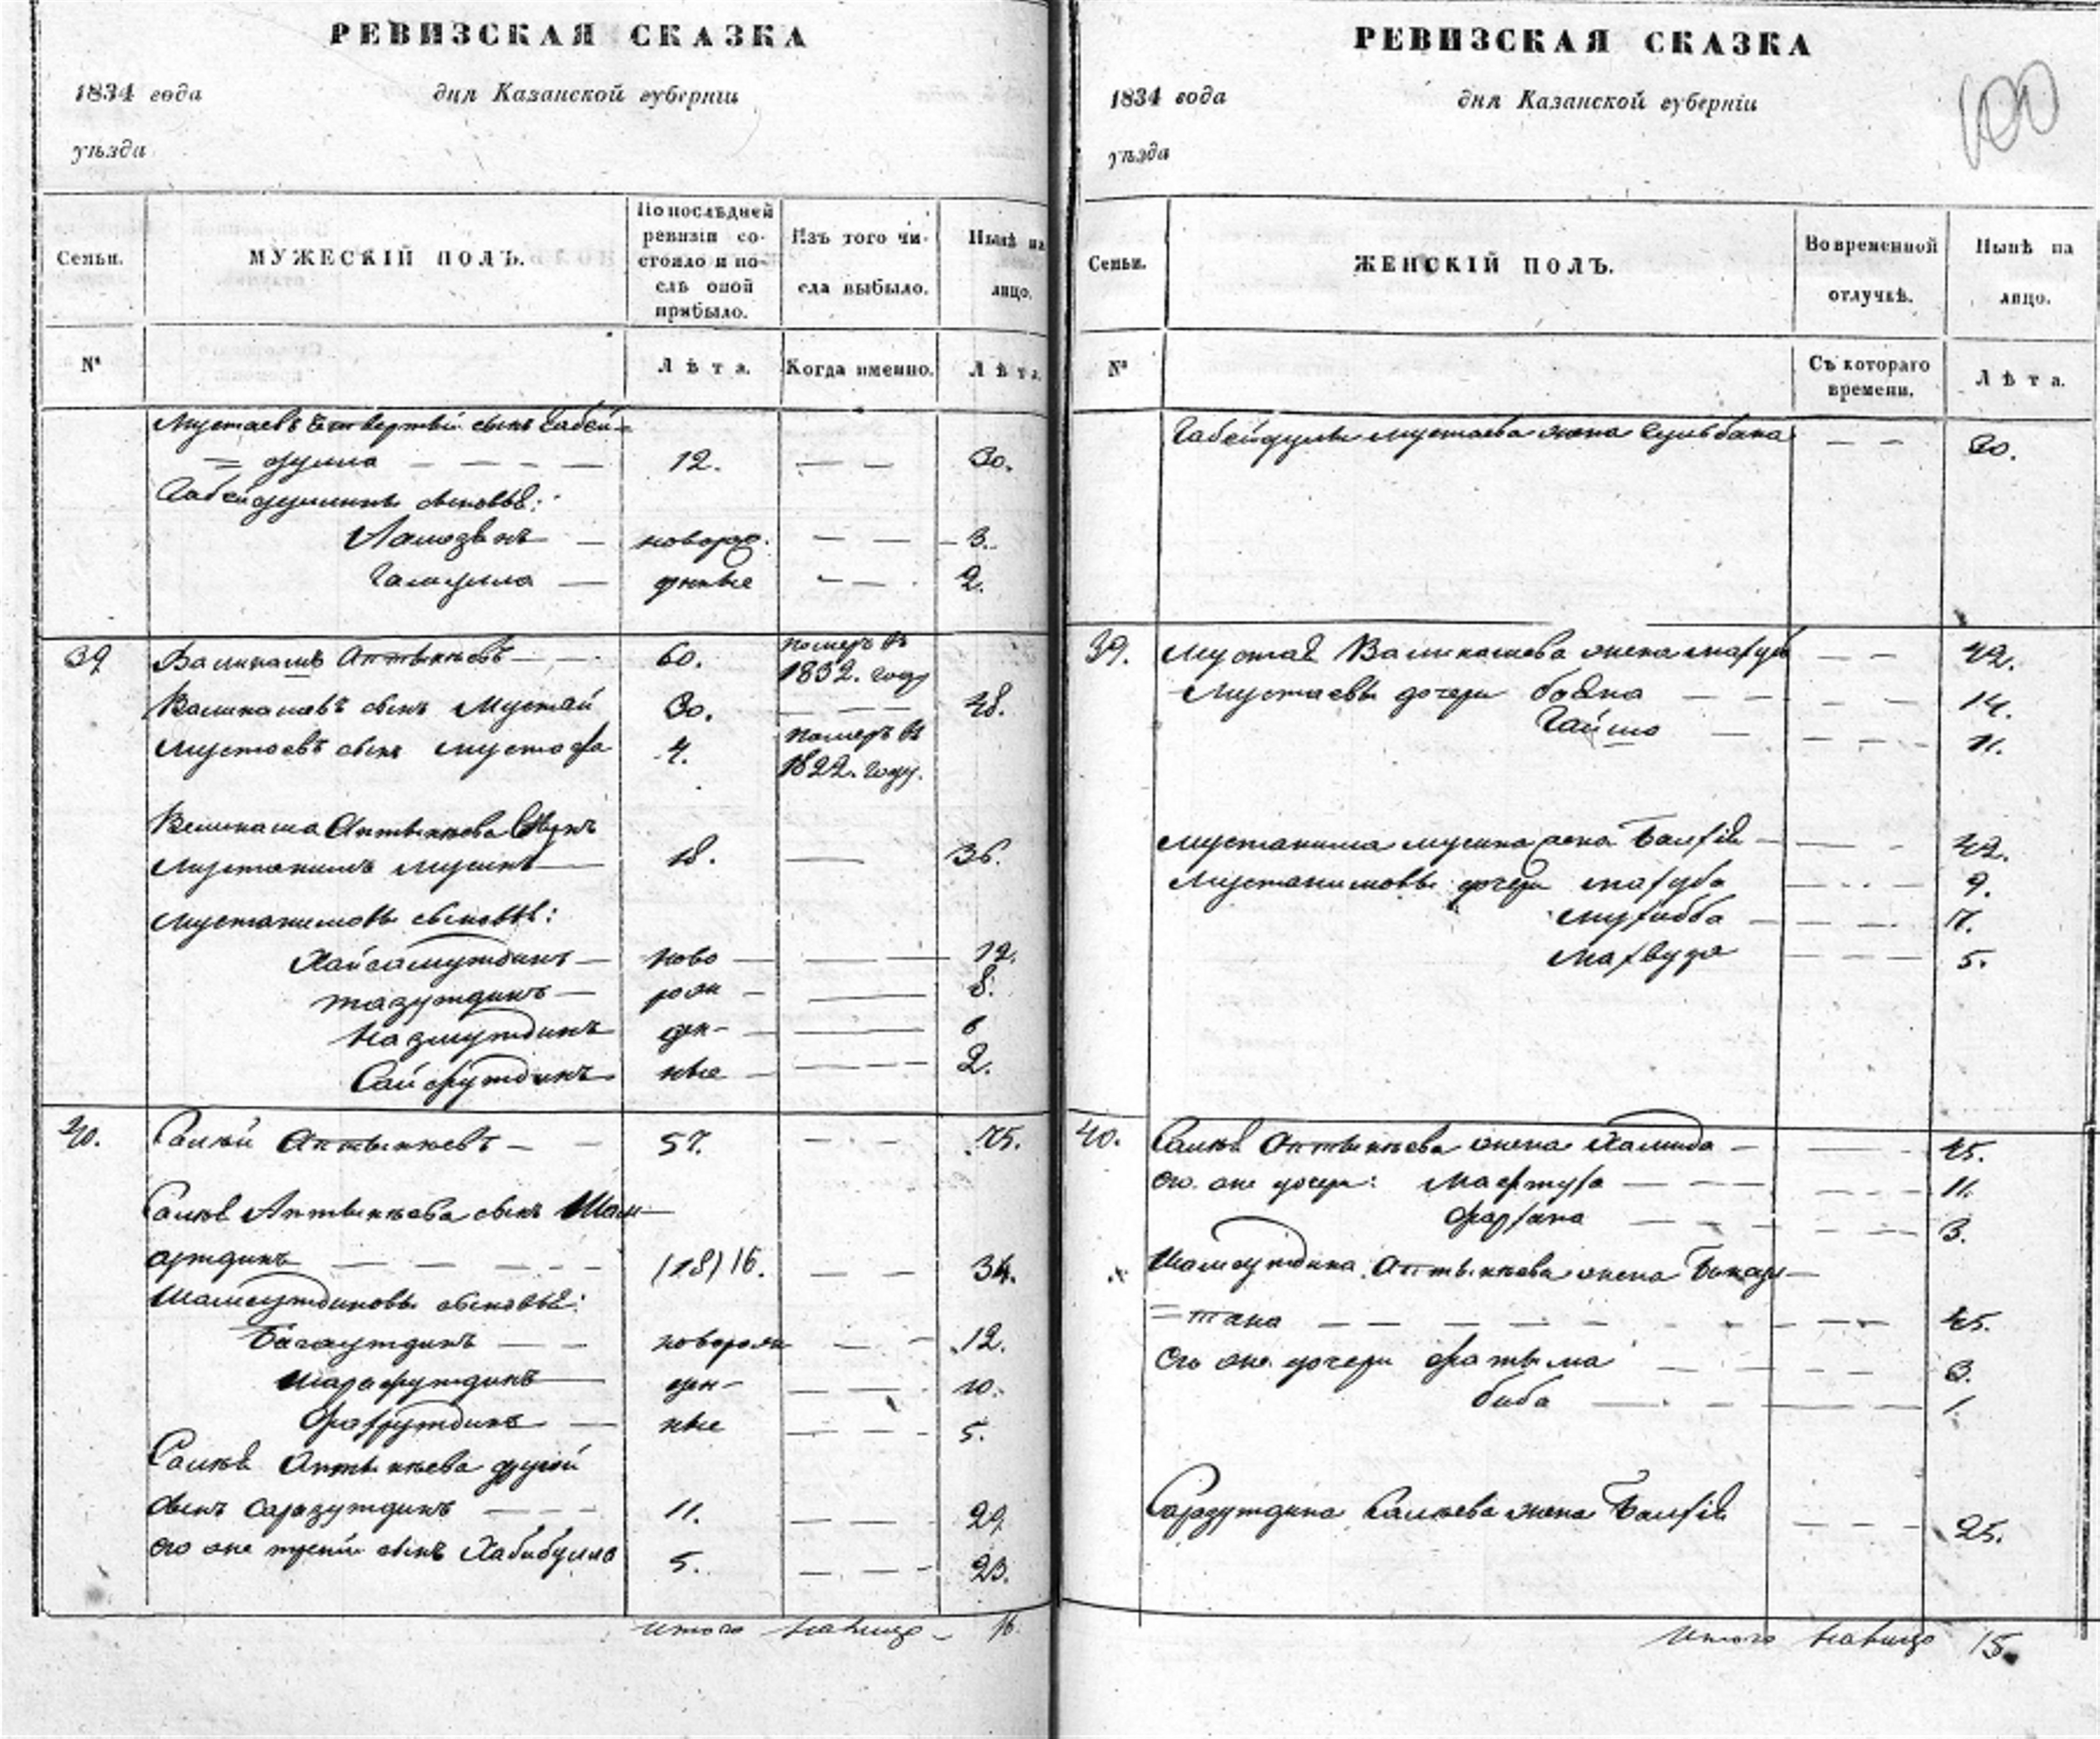 РЕВИЗСКАЯ СКАЗКА
1834 года дня Казанской губернiи
уѣзда
Семьи. МУЖЕСКIЙ ПОЛЪ. По послѣдней ревизiи состояло и послѣ оной прибыло. Изъ того числа выбыло. Нынѣ на лицо.
№ Лѣта. Когда именно. Лѣта.
Мустаевъ четвертый сынъ Габей=
=дулла — — — — 12. — — 30.
Габейдуллинъ сыновья:
— новорож. — — 3.
— денные — — 2.
39 Валикашъ Аптыкѣевъ — — 60. померъ въ
1832. году
Валикаевъ сынъ Мустай 30. — — — 48.
Мустаевъ сынъ Мустафа 4. померъ въ
1822. году.
Валикаша Аптыкѣева
Мустакимъ Мусинъ — 18. — 36.
Мустакимовы сыновья:
Хайсамутдинъ — ново — — — 12.
Тазутдинъ — рож — — 8.
Назмутдинъ ден- — — 6
Сайфутдинъ ные — — — — 2.
40. Салѣй Аптыкѣевъ — — 57. — — — 75.
Салѣя Аптыкѣева сынъ Шам—
сутдинъ — — — — — (18) 16. — — 34.
Шамсутдиновы сыновья:
Багаутдинъ — — новорож — — 12.
Шарафутдинъ ден- — — 10.
Фахрутдинъ — ные — — — 5.
Салѣя Аптыкѣева другой
сынъ Саразутдинъ — — — 11. — — — 29
его же третiй сынъ Хабибулла 5. — — — 23.
итого налицо — 16.
РЕВИЗСКАЯ СКАЗКА
1834 года дня Казанской губернiи
уѣзда
100
Семьи. ЖЕНСКIЙ ПОЛЪ. Во временной отлучкѣ. Нынѣ на лицо.
№ Съ котораго времени. Лѣта.
Габейдуллы Мустаева жена Гульбана — — 30.
39. Мустая Валикашева жена — — 42.
Мустаевы дочери Бояна — — — — 14.
Гайша — — — — 11.
Мустакима Мусина жена — — — 42.
Мустакимовы дочери Махуба — — 9.
Мухибба — — — — 7.
— — — — 5.
40. Салѣя Аптыкѣева жена Халида — — 45.
его же дочери: Мафтуха — — — — — — 11.
Фархана — — — — — — 3.
Шамсутдина Аптыкѣева жена Бикасул—
=тана — — — — — — — 45.
его же дочери Фатыма — — — — 3.
Биба — — — — 1.
Саразутдина Салѣева жена — — — 25.
итого налицо 15.